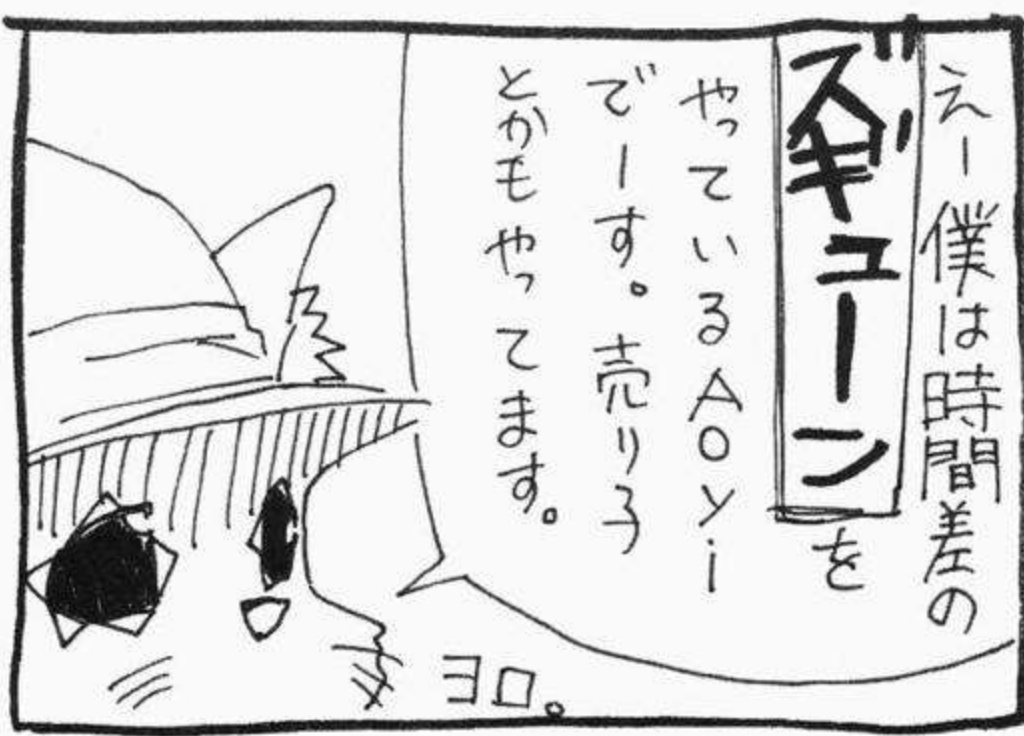 えー僕は時間差の
ズギューンを
やっているAOyi
でーす。売り子
とかもやってます。
ヨロ。